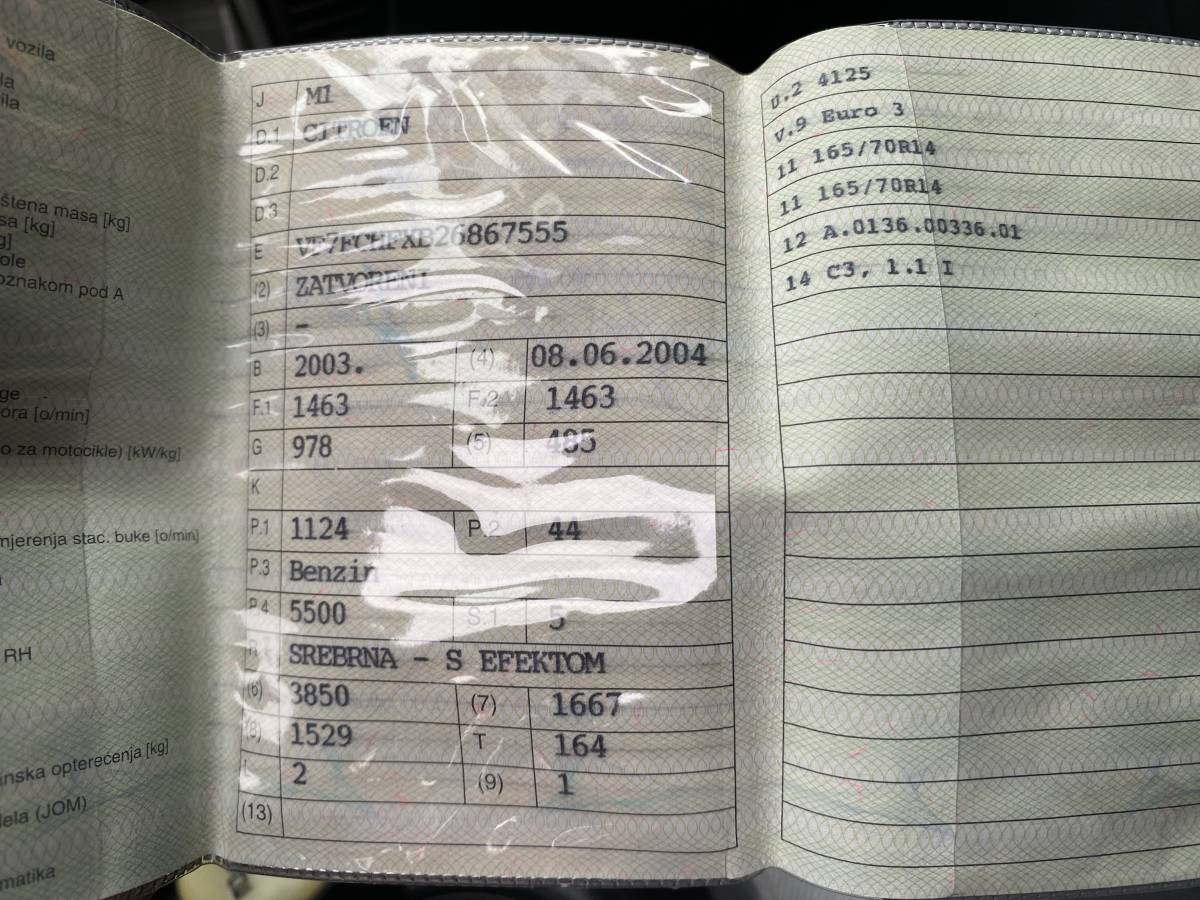 vozila
la
ila
štena masa [kg]
sa [kg]
g]
ole
oznakom pod A
ge -
ora [o/min]
o za motocikle) [kW/kg]
mjerenja stac. buke [o/min]
RH
inska opterećenja [kg]
lela (JOM)
matika
J M1
D.1 CITROEN
D.2
D.3
E VF7FCHFXB26867555
(2) ZATVORENI
(3) -
B 2003. (4) 08.06.2004
F.1 1463 F.2 1463
G 978 (5) 485
K
P.1 1124 P.2 44
P.3 Benzin
P.4 5500 S.1 5
R SREBRNA - S EFEKTOM
(6) 3850 (7) 1667
(8) 1529 T 164
L 2 (9) 1
(13)
U.2 4125
V.9 Euro 3
11 165/70R14
11 165/70R14
12 A.0136.00336.01
14 C3, 1.1 I